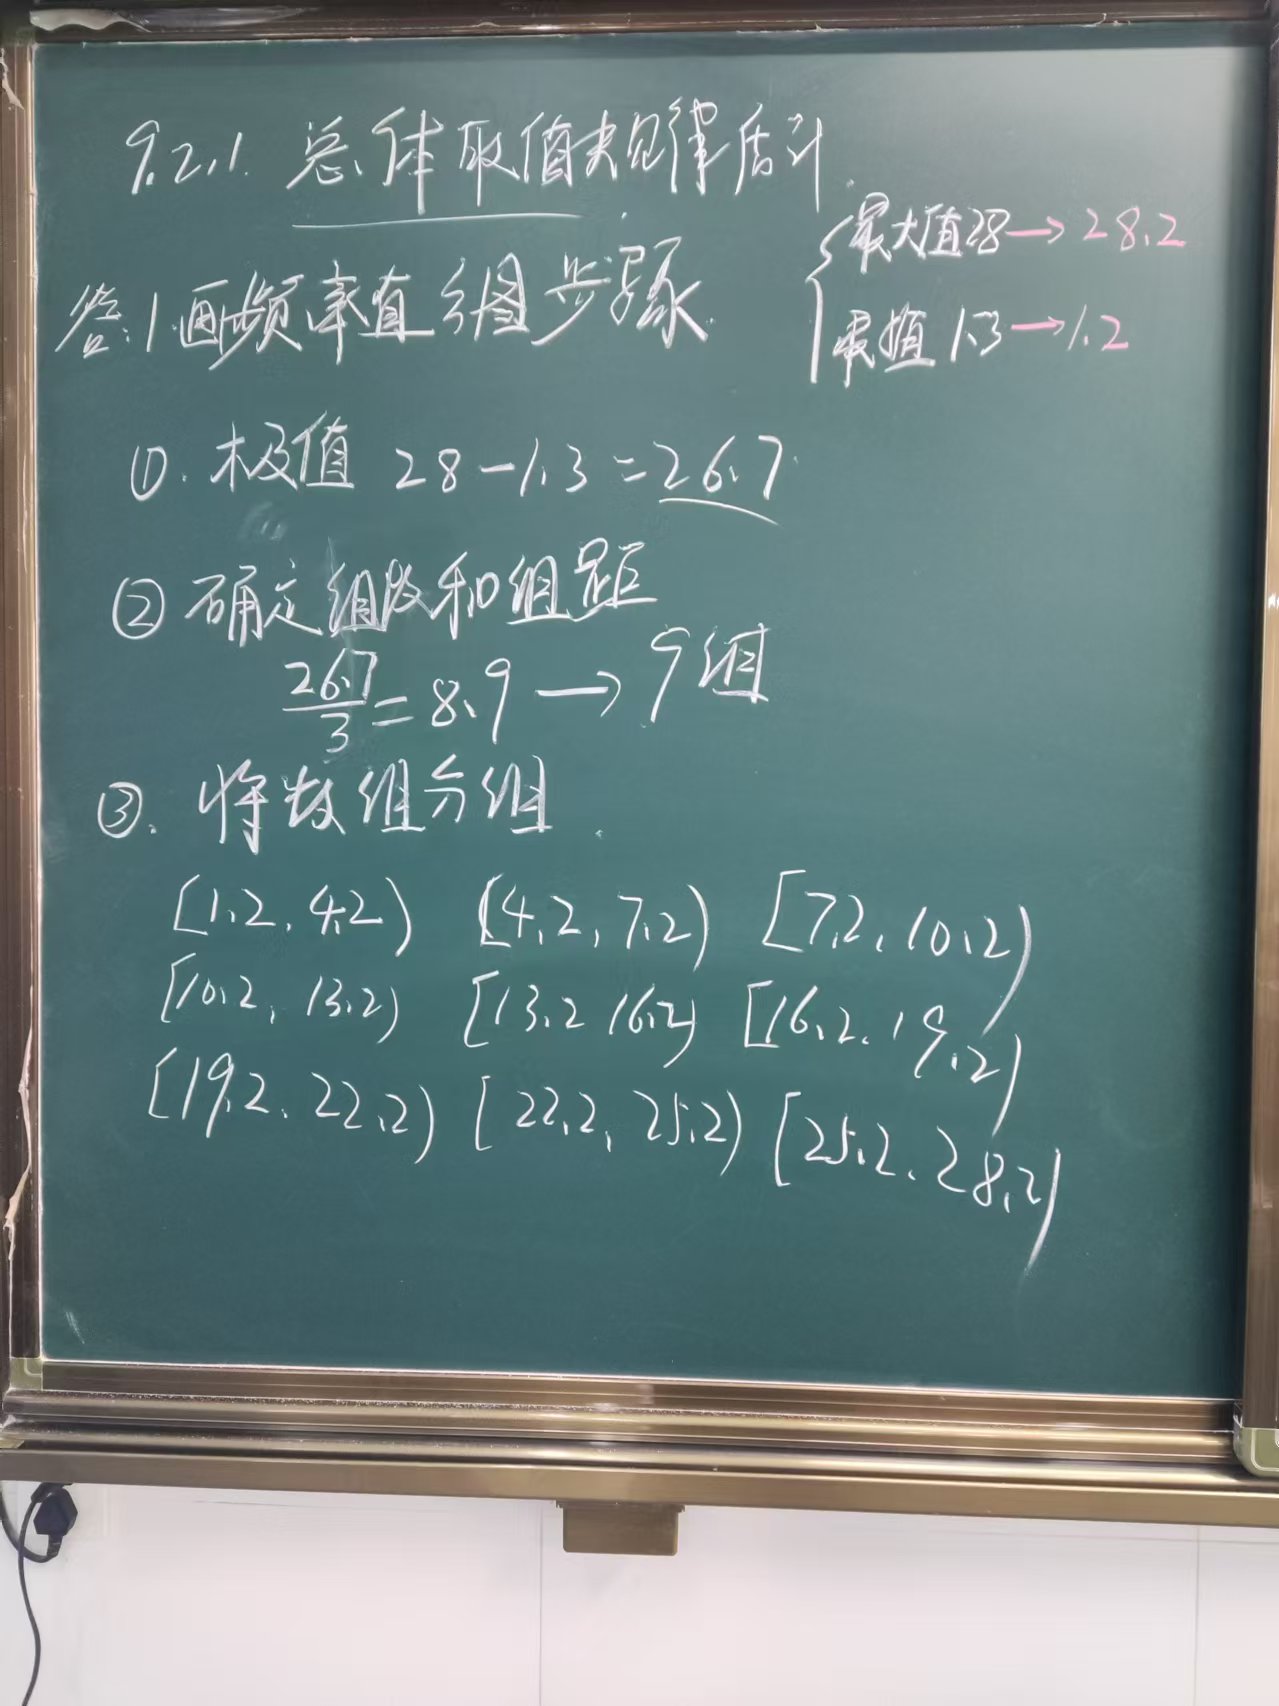 9.2.1 总体取值规律估计
最大值28→28.2
最值 1.3→1.2
答:1.画频率直方图步骤
①.极值 28-1.3=26.7
②确定组数和组距
26.7/3=8.9→9组
③.将数组分组
[1.2,4.2) [4.2,7.2) [7.2,10.2)
[10.2,13.2) [13.2 16.2) [16.2,19.2)
[19.2,22.2) [22.2,25.2) [25.2,28.2)